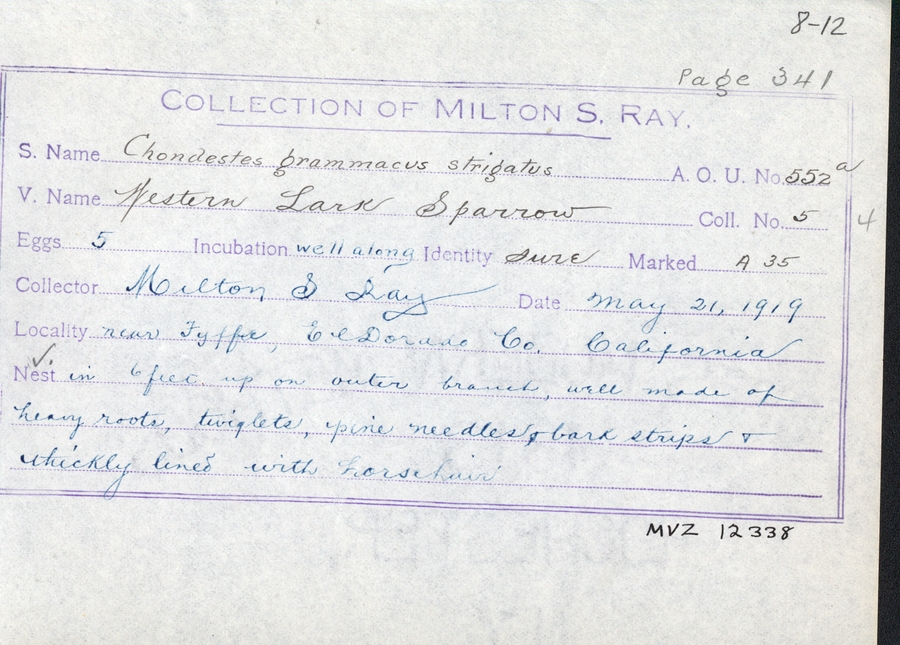 8-12
Page 341
COLLECTION OF MILTON S. RAY.
S. Name Chondestes grammacus strigatus A. O. U. No. 552a
V. Name Western Lark Sparrow Coll. No. 5 4
Eggs 5 Incubation well along Identity sure Marked A 35
Collector Milton S Ray Date May 21, 1919
Locality near Fyffe, El Dorado Co. California
✓.
Nest in 6 feet up on outer branch, well made of
heavy roots, twiglets, pine needles & bark strips &
thickly lined with horsehair
MVZ 12338